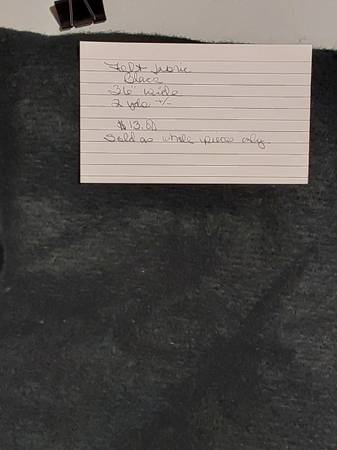 Felt fabric
Black
36" wide
2 yds +/-
$13.00
Sold as whole pieces only.